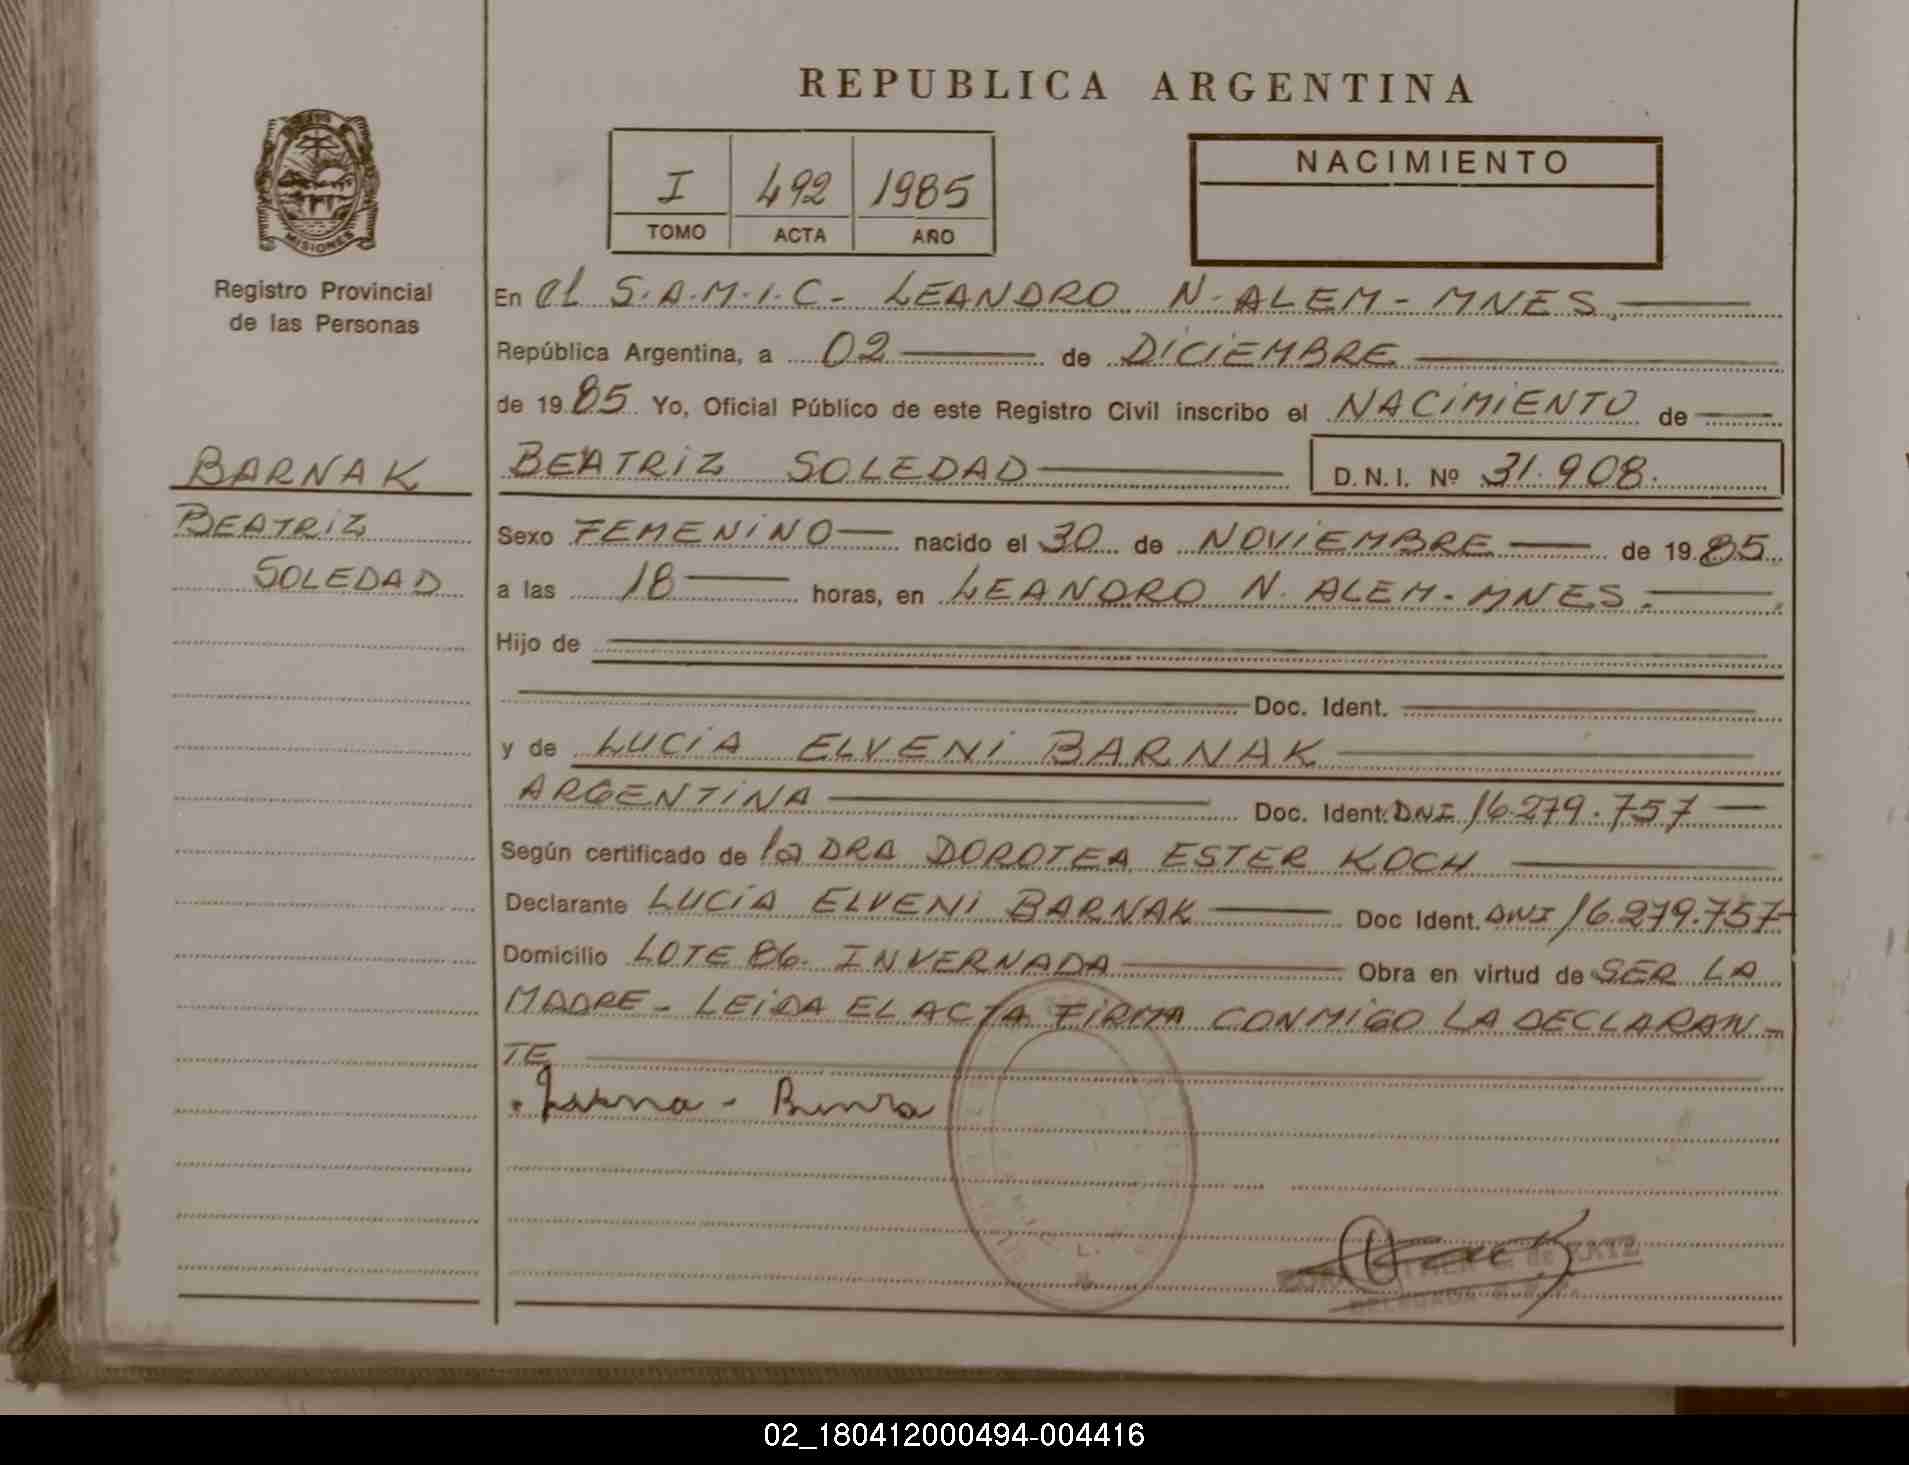 REPUBLICA ARGENTINA
MISIONES
Registro Provincial
de las Personas
I 492 1985
TOMO ACTA AÑO
NACIMIENTO
En el S.A.M.I.C- LEANDRO N-ALEM-MNES.
República Argentina, a 02 de DICIEMBRE
de 1985 Yo, Oficial Público de este Registro Civil inscribo el NACIMIENTO de
BARNAK
BEATRIZ
SOLEDAD
BEATRIZ SOLEDAD D.N.I. Nº 31.908.
Sexo FEMENINO nacido el 30 de NOVIEMBRE de 1985
a las 18 horas, en LEANDRO N. ALEM-MNES.
Hijo de
Doc. Ident.
y de LUCIA ELVENI BARNAK
ARGENTINA Doc. Ident. DNI 16.279.757
Según certificado de la DRA DOROTEA ESTER KOCH
Declarante LUCIA ELVENI BARNAK Doc Ident. DNI 16.279.757-
Domicilio LOTE 86. INVERNADA Obra en virtud de SER LA
MADRE- LEIDA EL ACTA FIRMA CONMIGO LA DECLARAN-
TE
02_180412000494-004416